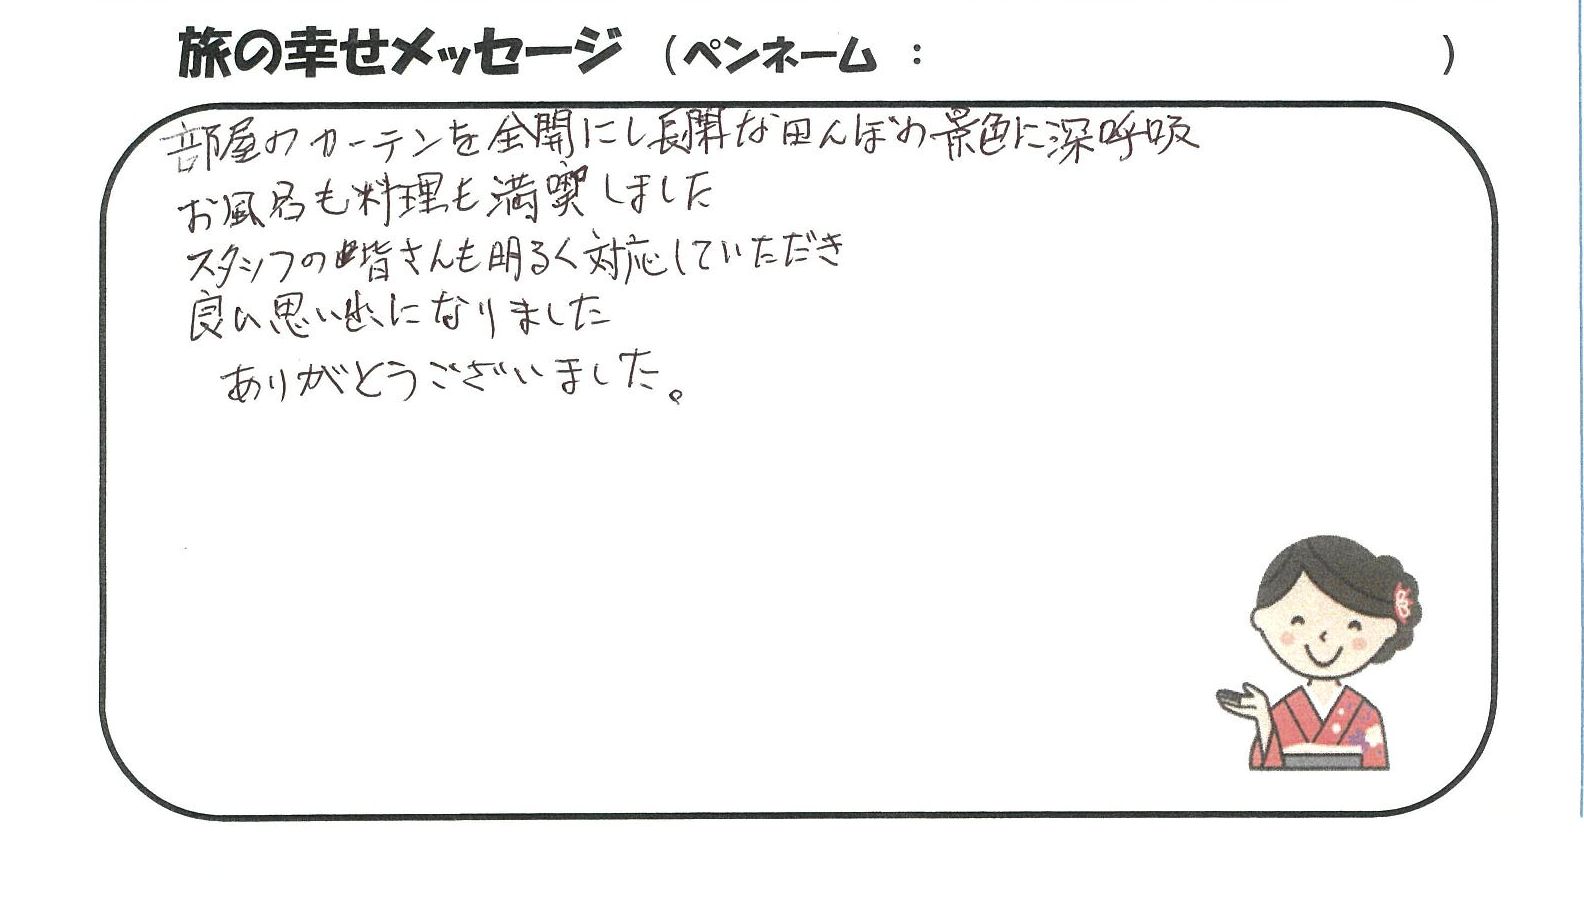 旅の幸せメッセージ （ペンネーム ： ）
部屋のカーテンを全開にし長閑な田んぼの景色に深呼吸
お風呂も料理も満喫しました
スタッフの皆さんも明るく対応していただき
良い思い出になりました
ありがとうございました。